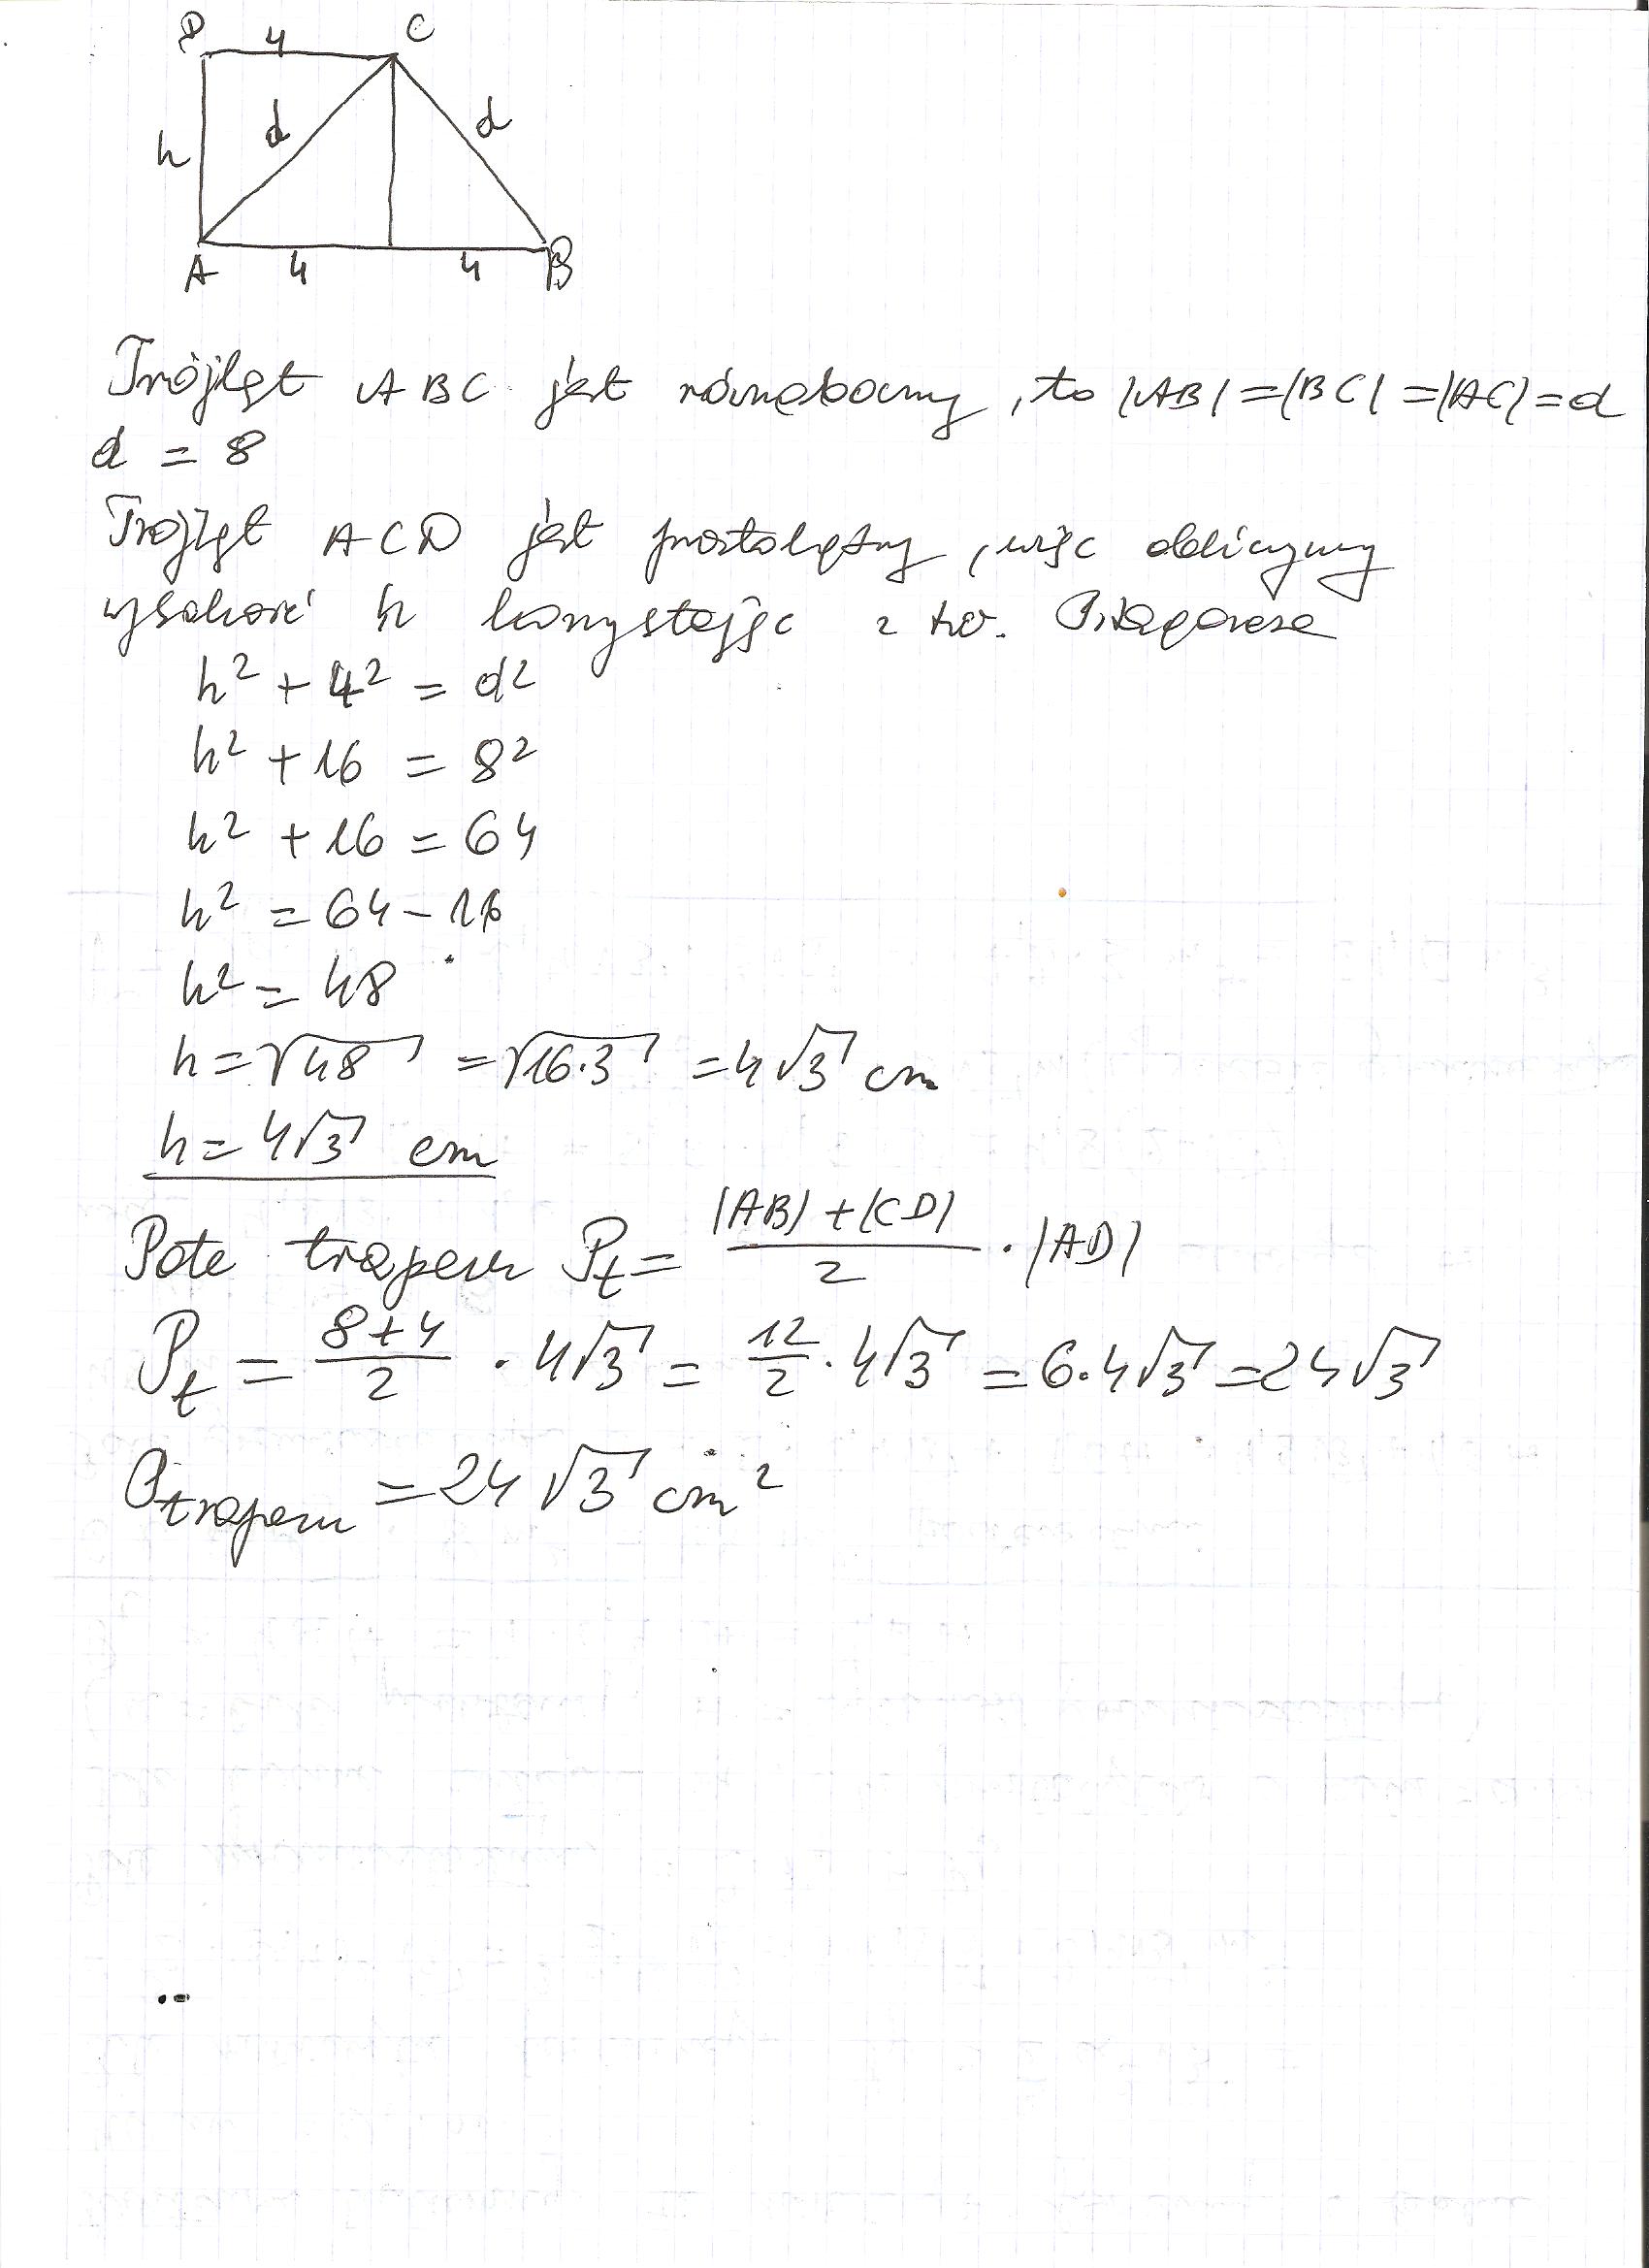 D 4 C
h d d
A 4 4 B
Trójkąt ABC jest równoboczny, to |AB| = |BC| = |AC| = d
d = 8
Trójkąt ACD jest prostokątny, więc obliczymy
wysokość h korzystając z tw. Pitagorasa
h² + 4² = d²
h² + 16 = 8²
h² + 16 = 64
h² = 64 - 16
h² = 48
h = √48 = √16·3 = 4√3 cm
h = 4√3 cm
Pole trapezu Pt = (|AB| + |CD|)/2 · |AD|
Pt = (8+4)/2 · 4√3 = 12/2 · 4√3 = 6·4√3 = 24√3
Ptrapezu = 24√3 cm²